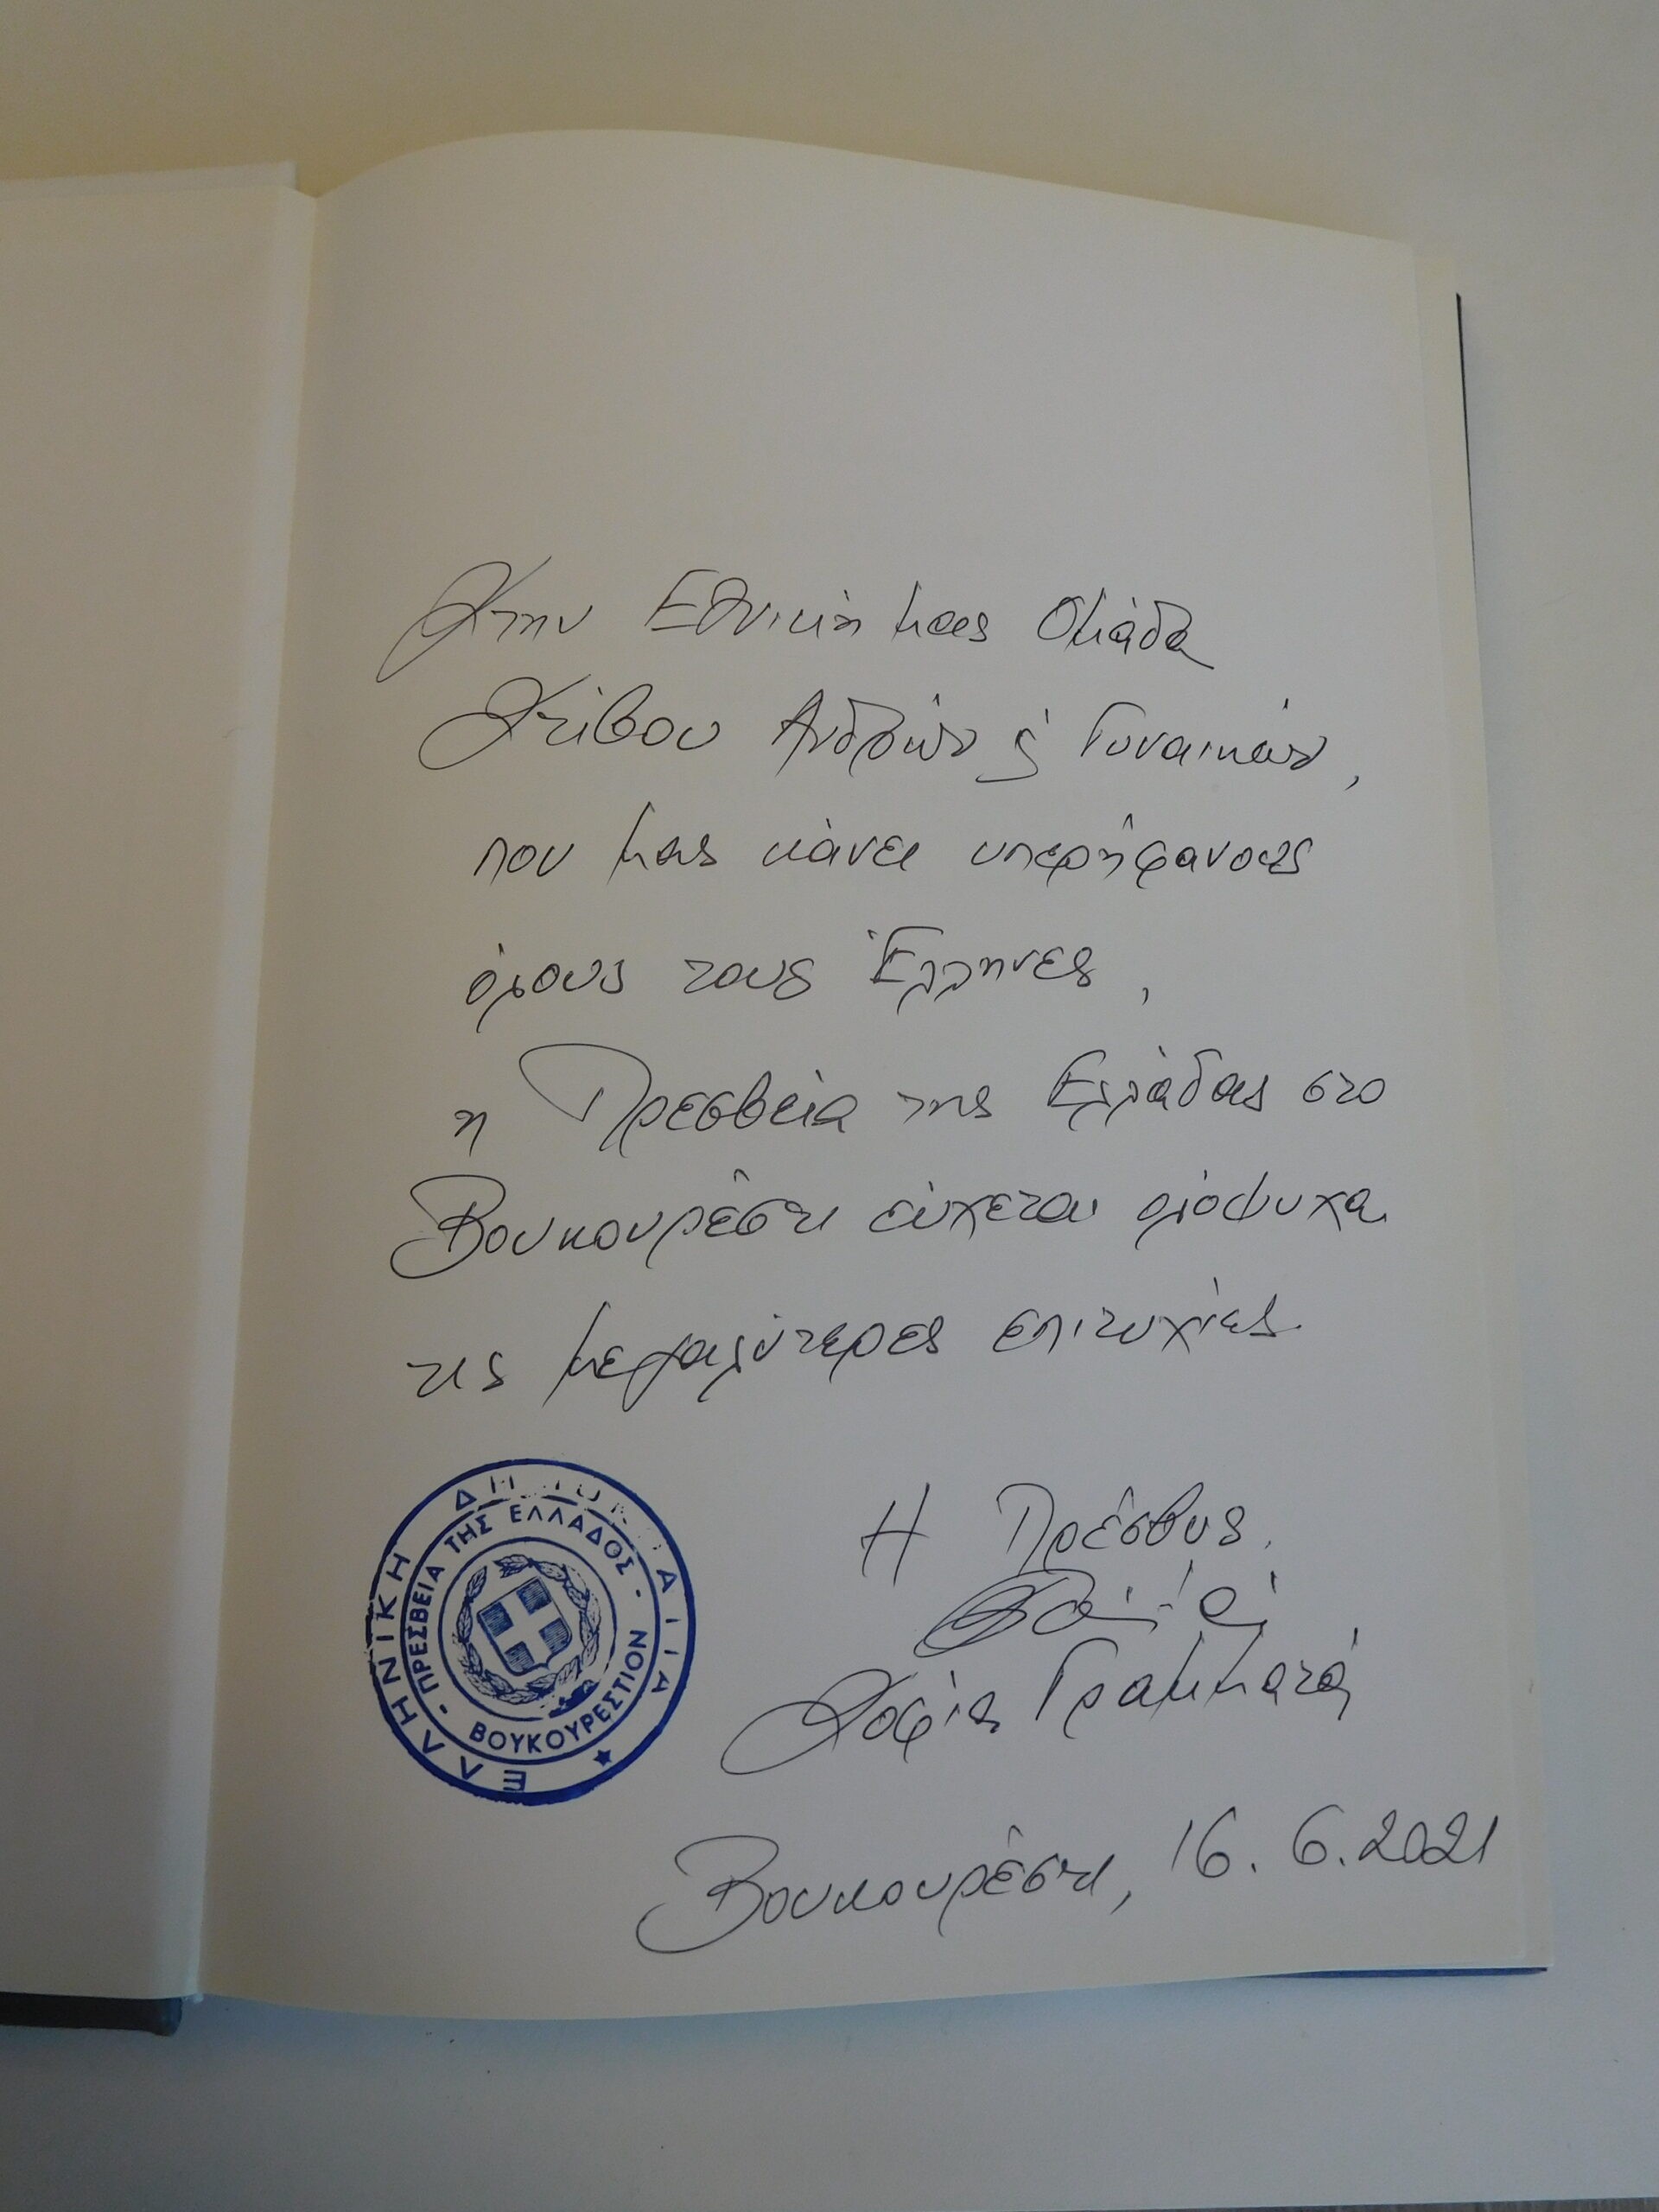 Στην Εθνική μας Ομάδα
Στίβου Ανδρών & Γυναικών,
που μας κάνει υπερήφανους
όλους τους Έλληνες,
η Πρεσβεία της Ελλάδας στο
Βουκουρέστι εύχεται ολόψυχα
τις μεγαλύτερες επιτυχίες.
Η Πρέσβυς,
Σοφία Γραμματά
Βουκουρέστι, 16.6.2021
ΕΛΛΗΝΙΚΗ
ΠΡΕΣΒΕΙΑ ΤΗΣ ΕΛΛΑΔΟΣ -
ΒΟΥΚΟΥΡΕΣΤΙΟΝ